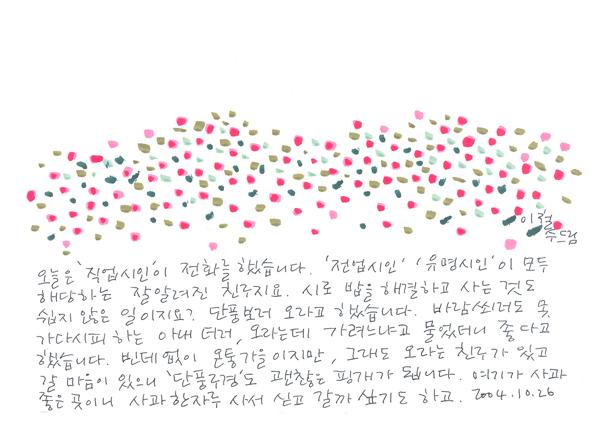 이철
수드림
오늘은 '직업시인'이 전화를 했습니다. '전업시인' '유명시인'이 모두
해당하는 잘알려진 친구지요. 시로 밥을 해결하고 사는 것도
쉽지 않은 일이지요? 단풍보러 오라고 했습니다. 바람쐬러도 못
가다시피 하는 아내 더러, 오라는데 가려느냐고 물었더니 좋다고
했습니다. 빈데 없이 온통가을이지만, 그래도 오라는 친구가 있고
갈 마음이 있으니 '단풍구경'도 괜찮은 핑개가 됩니다. 여기가 사과
좋은 곳이니 사과 한자루 사서 싣고 갈까 싶기도 하고. 2004.10.26